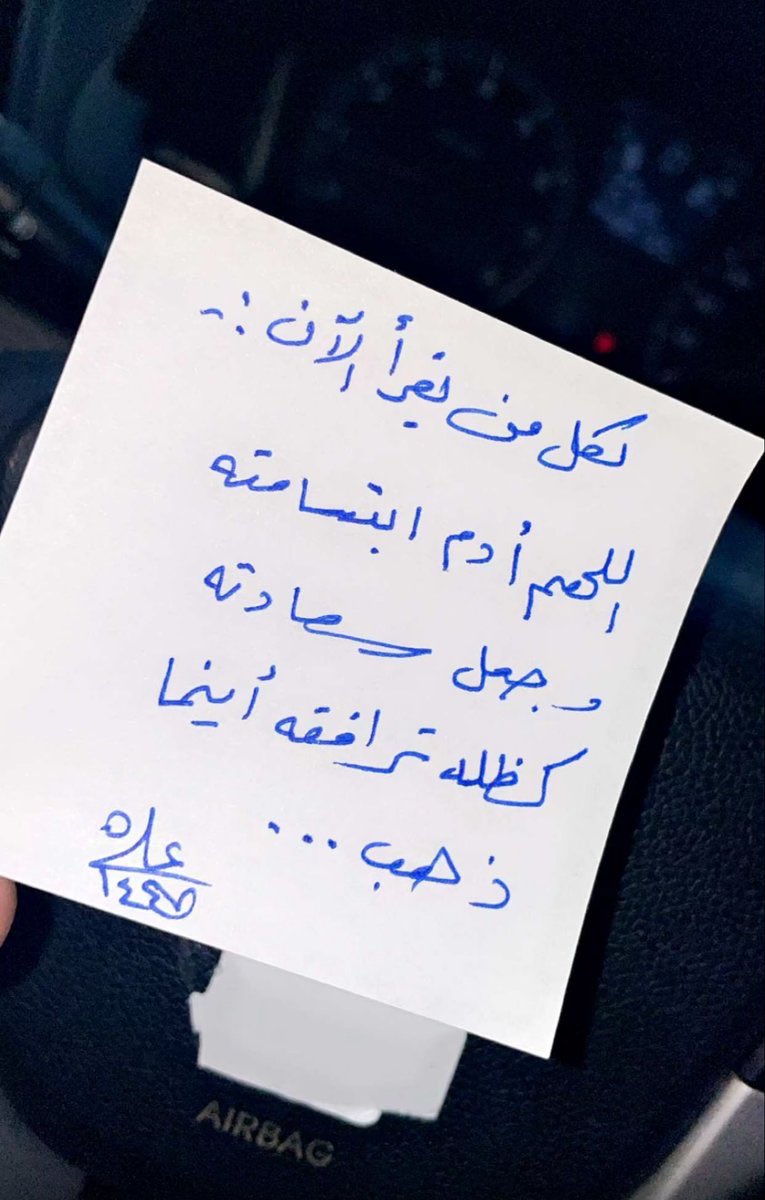 لكل من يقرأ الآن :-
اللهم أدم ابتسامته
وجعل سعادته
كظله ترافقه أينما
ذهب ...
١٤٤٧
AIRBAG